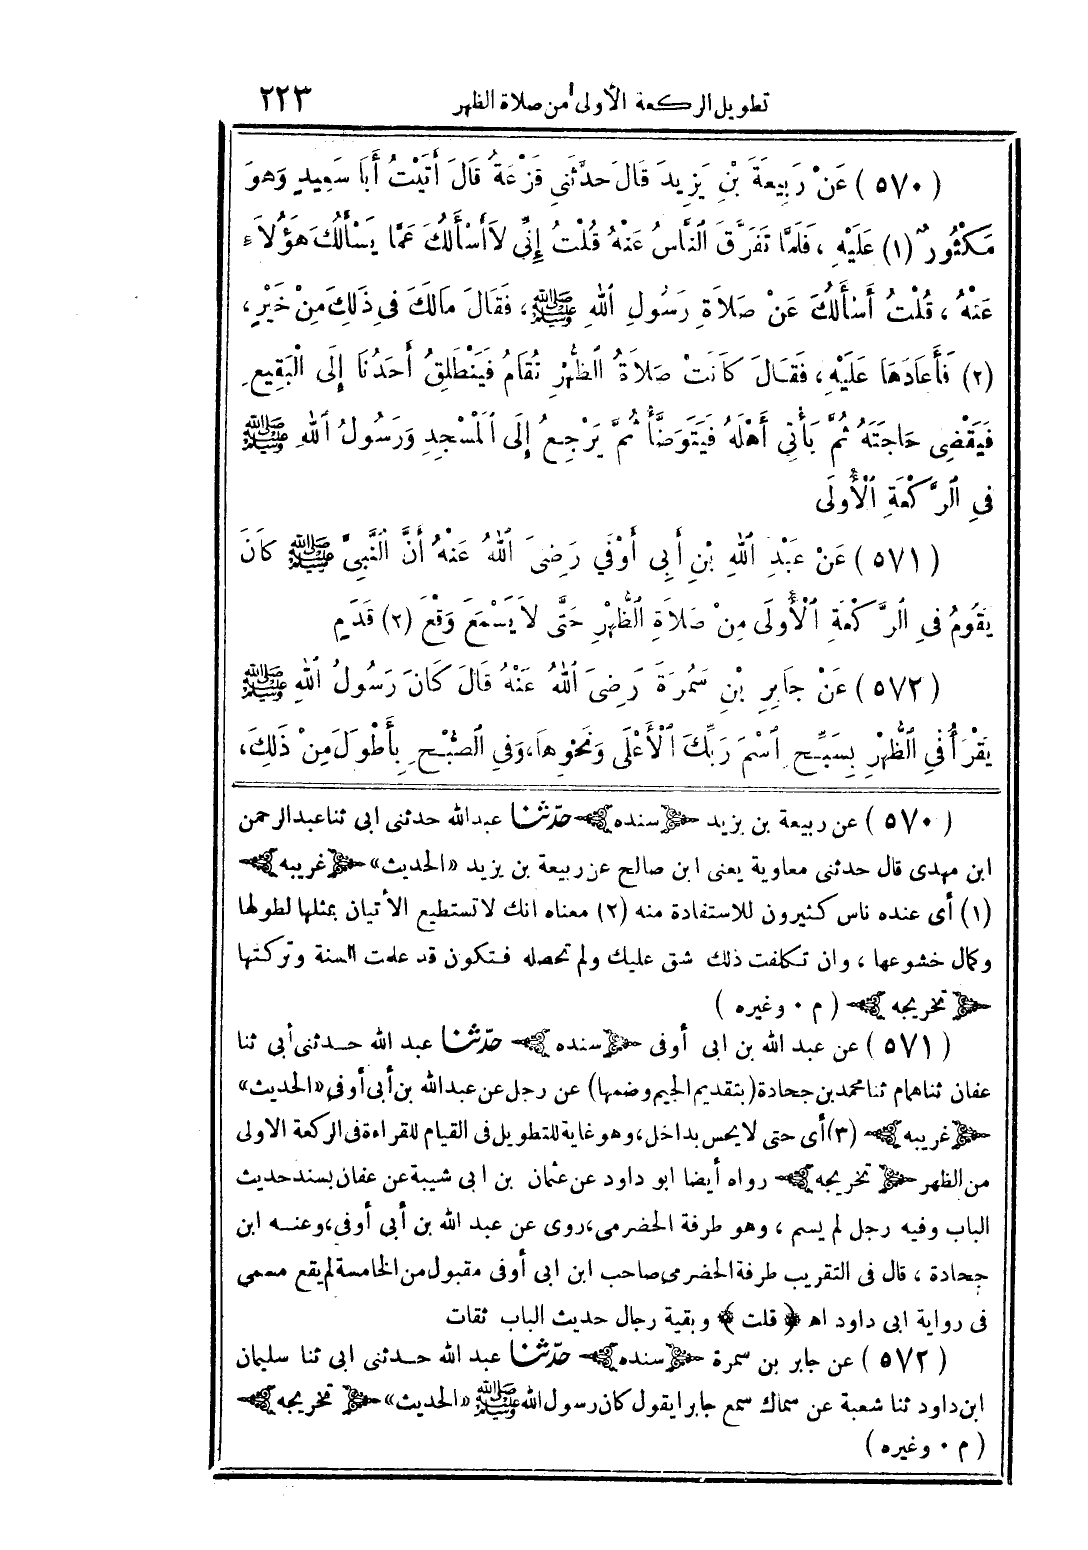 تطويل الركعة الأولى من صلاة الظهر ٢٢٣
(٥٧٠) عَنْ رَبِيعَةَ بْنِ يَزِيدَ قَالَ حَدَّثَنِي قَزْعَةُ قَالَ أَتَيْتُ أَبَا سَعِيدٍ وَهُوَ
مَكْثُورٌ (١) عَلَيْهِ ، فَلَمَّا تَفَرَّقَ النَّاسُ عَنْهُ قُلْتُ إِنِّي لاَ أَسْأَلُكَ عَمَّا يَسْأَلُكَ هَؤُلَاءِ
عَنْهُ ، قُلْتُ أَسْأَلُكَ عَنْ صَلَاةِ رَسُولِ اللهِ ﷺ ، فَقَالَ مَالَكَ فِي ذَلِكَ مِنْ خَيْرٍ ،
(٢) فَأَعَادَهَا عَلَيْهِ ، فَقَالَ كَانَتْ صَلَاةُ الظُّهْرِ تُقَامُ فَيَنْطَلِقُ أَحَدُنَا إِلَى الْبَقِيعِ
فَيَقْضِي حَاجَتَهُ ثُمَّ يَأْتِي أَهْلَهُ فَيَتَوَضَّأُ ثُمَّ يَرْجِعُ إِلَى الْمَسْجِدِ وَرَسُولُ اللهِ ﷺ
فِي الرَّكْعَةِ الْأُولَى
(٥٧١) عَنْ عَبْدِ اللهِ بْنِ أَبِي أَوْفَي رَضِيَ اللهُ عَنْهُ أَنَّ النَّبِيَّ ﷺ كَانَ
يَقُومُ فِي الرَّكْعَةِ الْأُولَى مِنْ صَلَاةِ الظُّهْرِ حَتَّى لاَ يَسْمَعَ وَقْعَ (٢) قَدَمٍ
(٥٧٢) عَنْ جَابِرِ بْنِ سَمُرَةَ رَضِيَ اللهُ عَنْهُ قَالَ كَانَ رَسُولُ اللهِ ﷺ
يَقْرَأُ فِي الظُّهْرِ بِسَبِّحِ اسْمَ رَبِّكَ الْأَعْلَى وَنَحْوِهَا، وَفِي الصُّبْحِ بِأَطْوَلَ مِنْ ذَلِكَ،
(٥٧٠) عن ربيعة بن يزيد ﴿سنده﴾ حدّثنا عبدالله حدثنى ابى ثنا عبدالرحمن
ابن مهدى قال حدثنى معاوية يعنى ابن صالح عن ربيعة بن يزيد «الحديث» ﴿غريبه﴾
(١) أى عنده ناس كثيرون للاستفادة منه (٢) معناه انك لا تستطيع الأتيان بمثلها لطولها
وكمال خشوعها ، وان تكلفت ذلك شق عليك ولم تحصله فتكون قد علمت السنة وتركتها
﴿تخريجه﴾ (م ٠ وغيره)
(٥٧١) عن عبد الله بن ابى أوفى ﴿سنده﴾ حدّثنا عبد الله حدثنى أبى ثنا
عفان ثنا همام ثنا محمد بن جحادة (بتقديم الجيم وضمها) عن رجل عن عبدالله بن أبى أوفى «الحديث»
﴿غريبه﴾ (٣) أى حتى لا يحس بداخل، وهو غاية للتطويل فى القيام للقراءة فى الركعة الاولى
من الظهر ﴿تخريجه﴾ رواه أيضا ابو داود عن عثمان بن ابى شيبة عن عفان بسند حديث
الباب وفيه رجل لم يسم ، وهو طرفة الحضرمى، روى عن عبد الله بن أبى أوفى، وعنه ابن
جحادة ، قال فى التقريب طرفة الحضرمى صاحب ابن ابى أوفى مقبول من الخامسة لم يقع مسمى
فى رواية ابى داود اه ﴿قلت﴾ وبقية رجال حديث الباب ثقات
(٥٧٢) عن جابر بن سمرة ﴿سنده﴾ حدّثنا عبد الله حدثنى ابى ثنا سليمان
ابن داود ثنا شعبة عن سماك سمع جابرا يقول كان رسول الله ﷺ «الحديث» ﴿تخريجه﴾
(م ٠ وغيره)